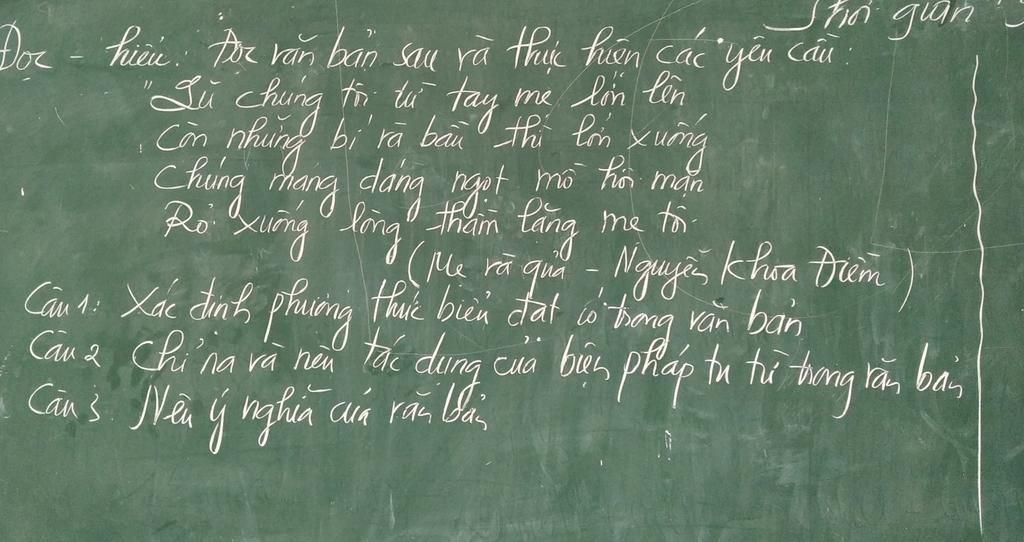 Thời gian
Đọc - hiểu: Đọc văn bản sau và thực hiện các yêu cầu:
"Lũ chúng tôi từ tay mẹ lớn lên
Còn những bí và bầu thì lớn xuống
Chúng mang dáng ngọt mồ hôi mặn
Rỏ xuống lòng thầm lặng mẹ tôi
(Mẹ và quả - Nguyễn Khoa Điềm)
Câu 1: Xác định phương thức biểu đạt có trong văn bản
Câu 2 Chỉ ra và nêu tác dụng của biện pháp tu từ trong văn bản
Câu 3 Nêu ý nghĩa của văn bản